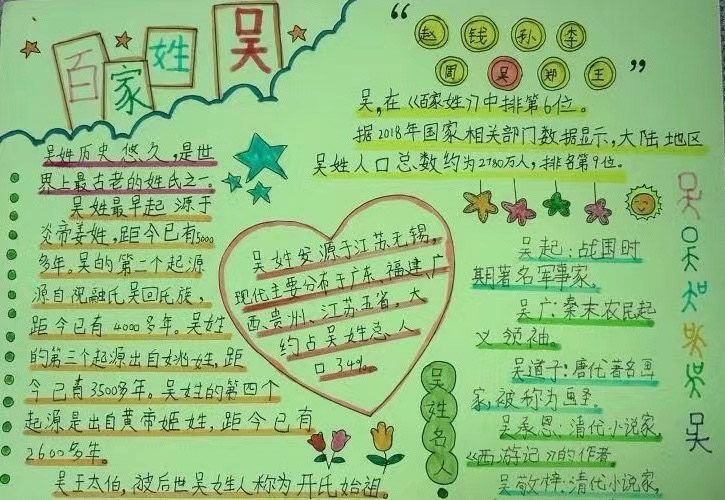 百家姓 吴
“赵 钱 孙 李
周 吴 郑 王”
吴,在《百家姓》中排第6位。
据2018年国家相关部门数据显示,大陆地区
吴姓人口总数约为2780万人,排名第9位。
吴姓历史悠久,是世
界上最古老的姓氏之一。
吴姓最早起源于
炎帝姜姓,距今已有5000
多年。吴的第二个起源
源自祝融氏吴回氏族,
距今已有4000多年。吴姓
的第三个起源出自姚姓,距
今已有3500多年。吴姓的第四个
起源是出自黄帝姬姓,距今已有
2600多年。
吴王太伯,被后世吴姓人称为开氏始祖。
吴姓发源于江苏无锡,
现代主要分布于广东、福建、广
西、贵州、江苏五省,大
约占吴姓总人
口34%。
吴姓名人
吴起:战国时
期著名军事家。
吴广:秦末农民起
义领袖。
吴道子:唐代著名画
家,被称为画圣。
吴承恩:清代小说家,
《西游记》的作者。
吴敬梓:清代小说家,
吴